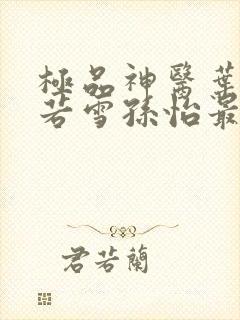 極品神醫葉
若雪孫怡最
君若蘭